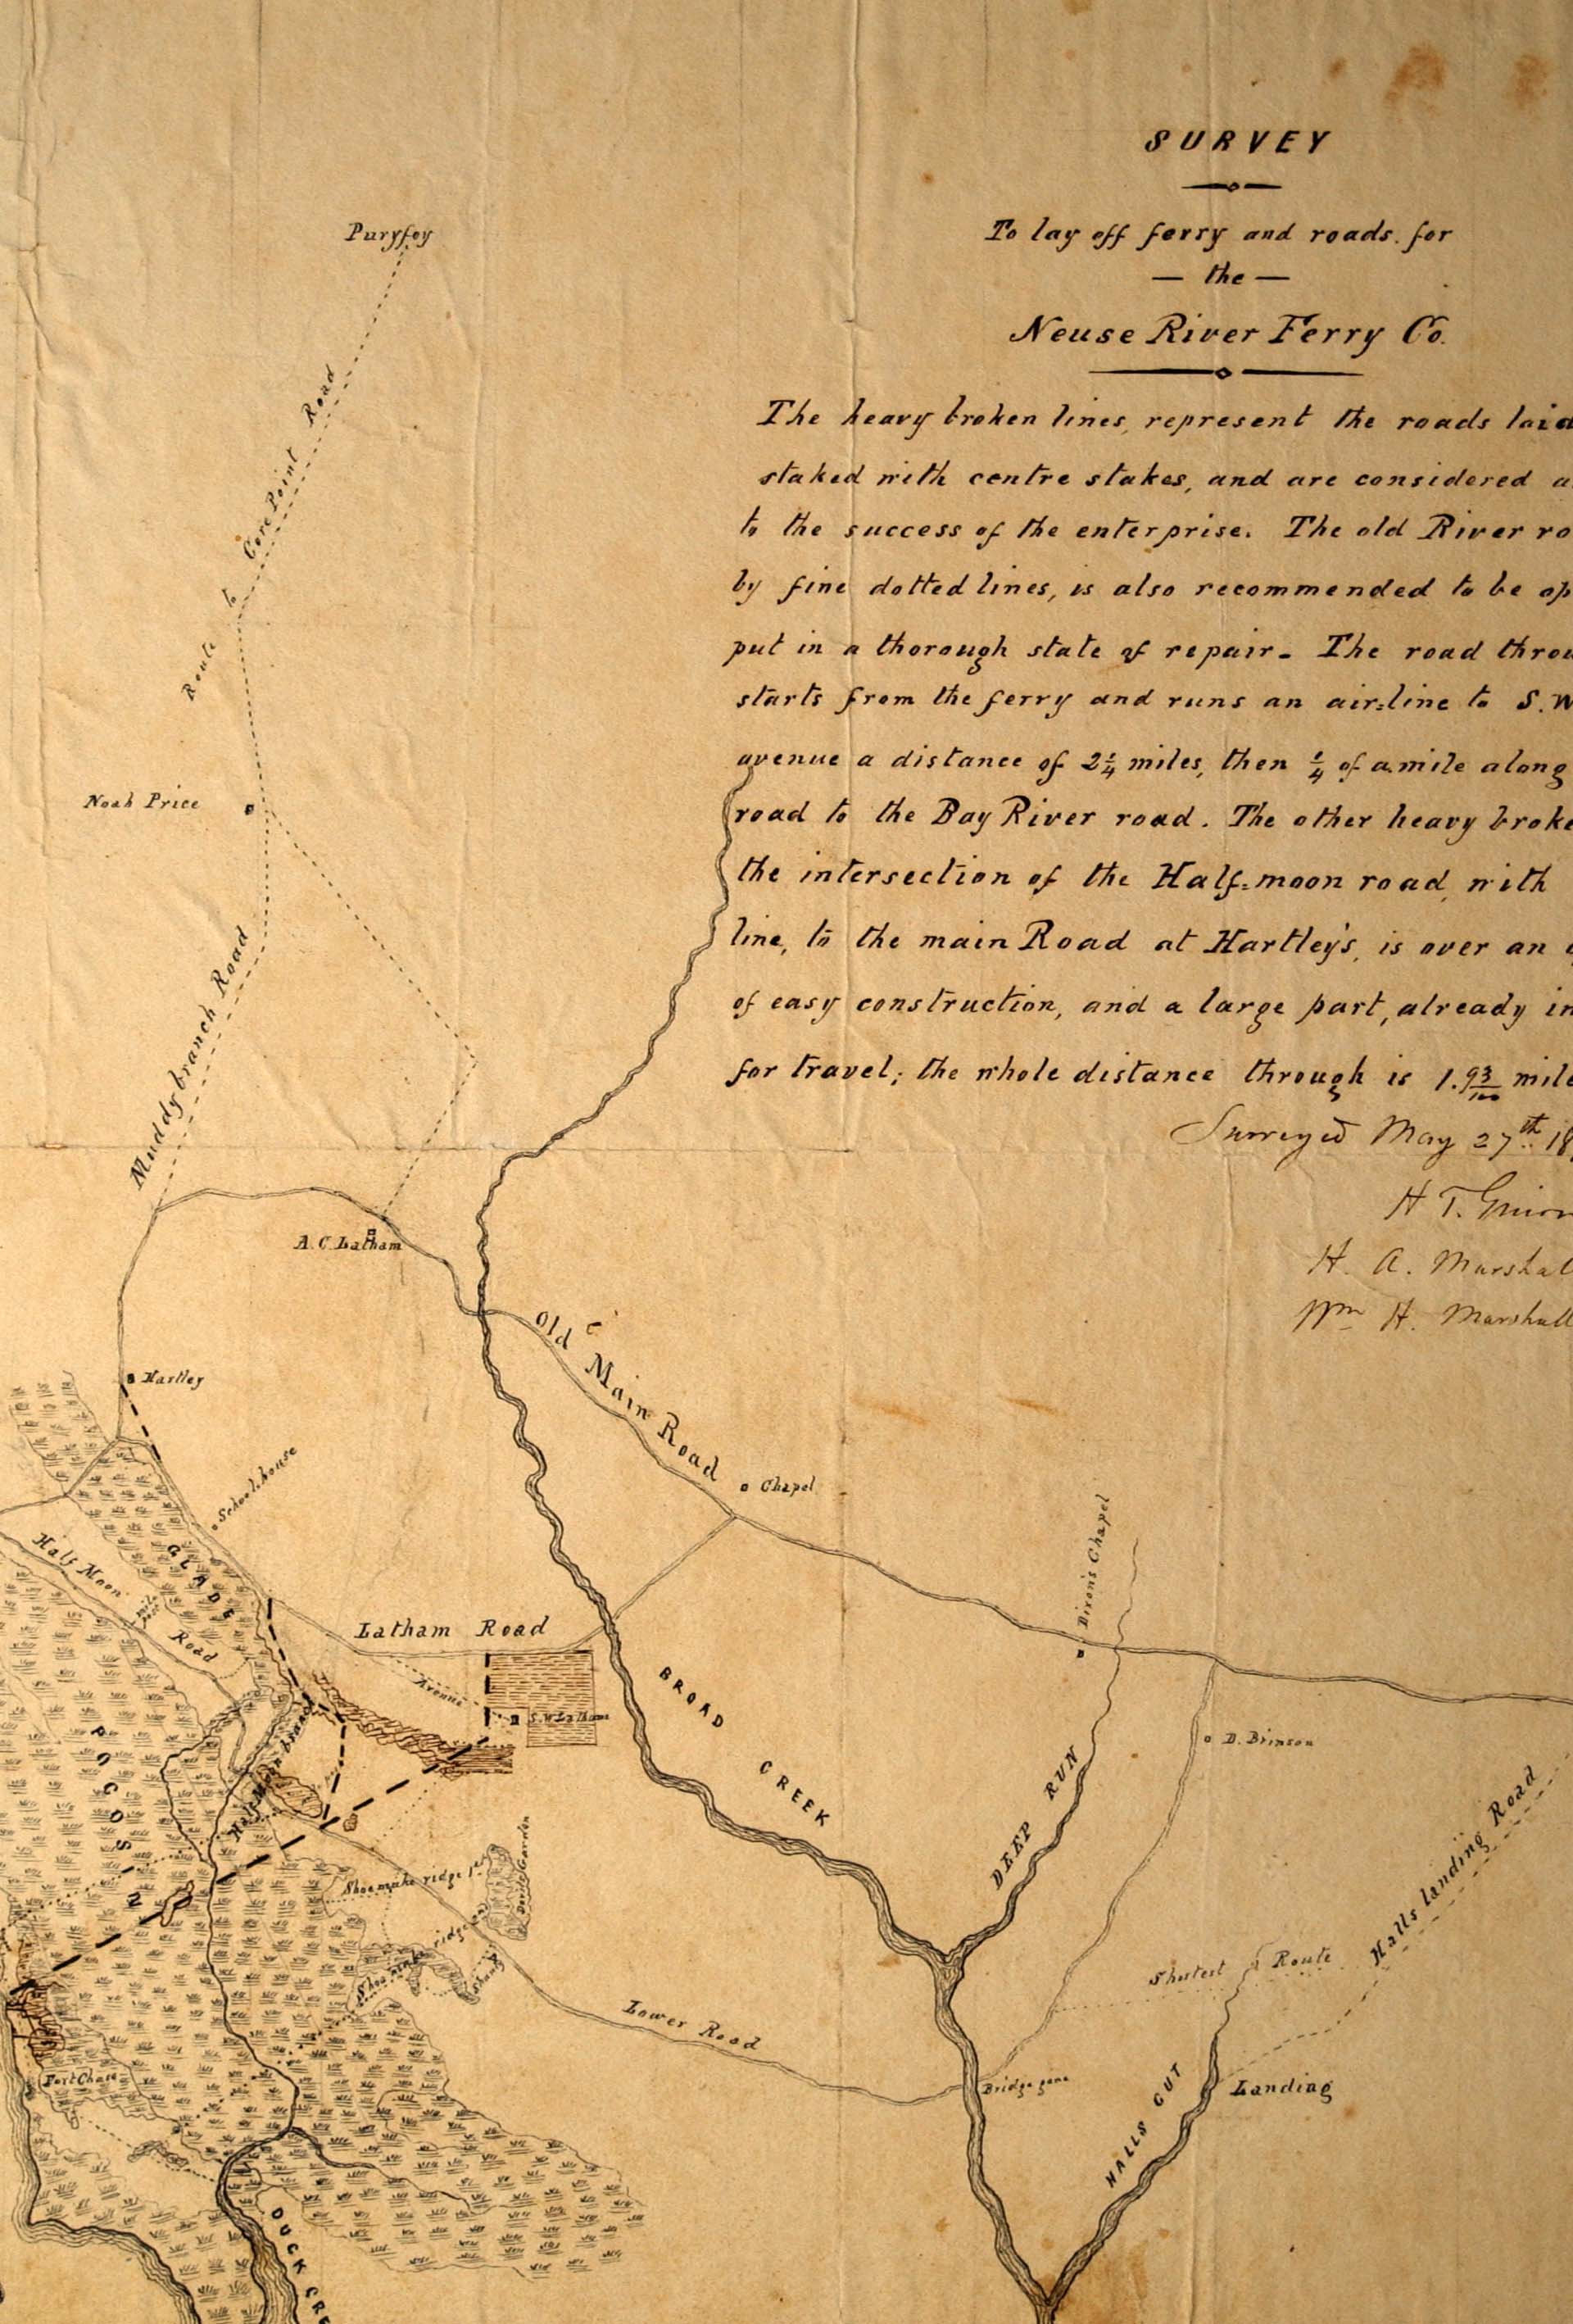 SURVEY
To lay off ferry and roads for
— the —
Neuse River Ferry Co.
The heavy broken lines, represent the roads laid
staked with centre stakes, and are considered
to the success of the enterprise. The old River
by fine dotted lines, is also recommended to be
put in a thorough state of repair. The road
starts from the ferry and runs an air-line to S.W
avenue a distance of 2¼ miles, then ¼ of a mile along
road to the Bay River road. The other heavy
the intersection of the Half-moon road, with
line, to the main Road at Hartley's, is over an
of easy construction, and a large part, already
for travel; the whole distance through is 1.93/100
Surveyed May 27th 18
H T. Guion
H. A. Marshal
Wm H. Marshall
Puryfoy
Route to Core Point Road
Noah Price
Muddy branch Road
A. C. Latham
Old Main Road
Hartley
Chapel
Schoolhouse
GLADE
Half Moon Road
mile post
Dixon's Chapel
Latham Road
Avenue
S.W. Latham
BROAD CREEK
D. Brinson
POCOSIN
Half Moon branch
DEEP RUN
Halls landing Road
Shoemake ridge
Devils Garden
Shoemake ridge
Shanty
Shortest Route
Lower Road
Bridge gone
Fort Chase
Landing
HALLS GUT
DUCK CRE